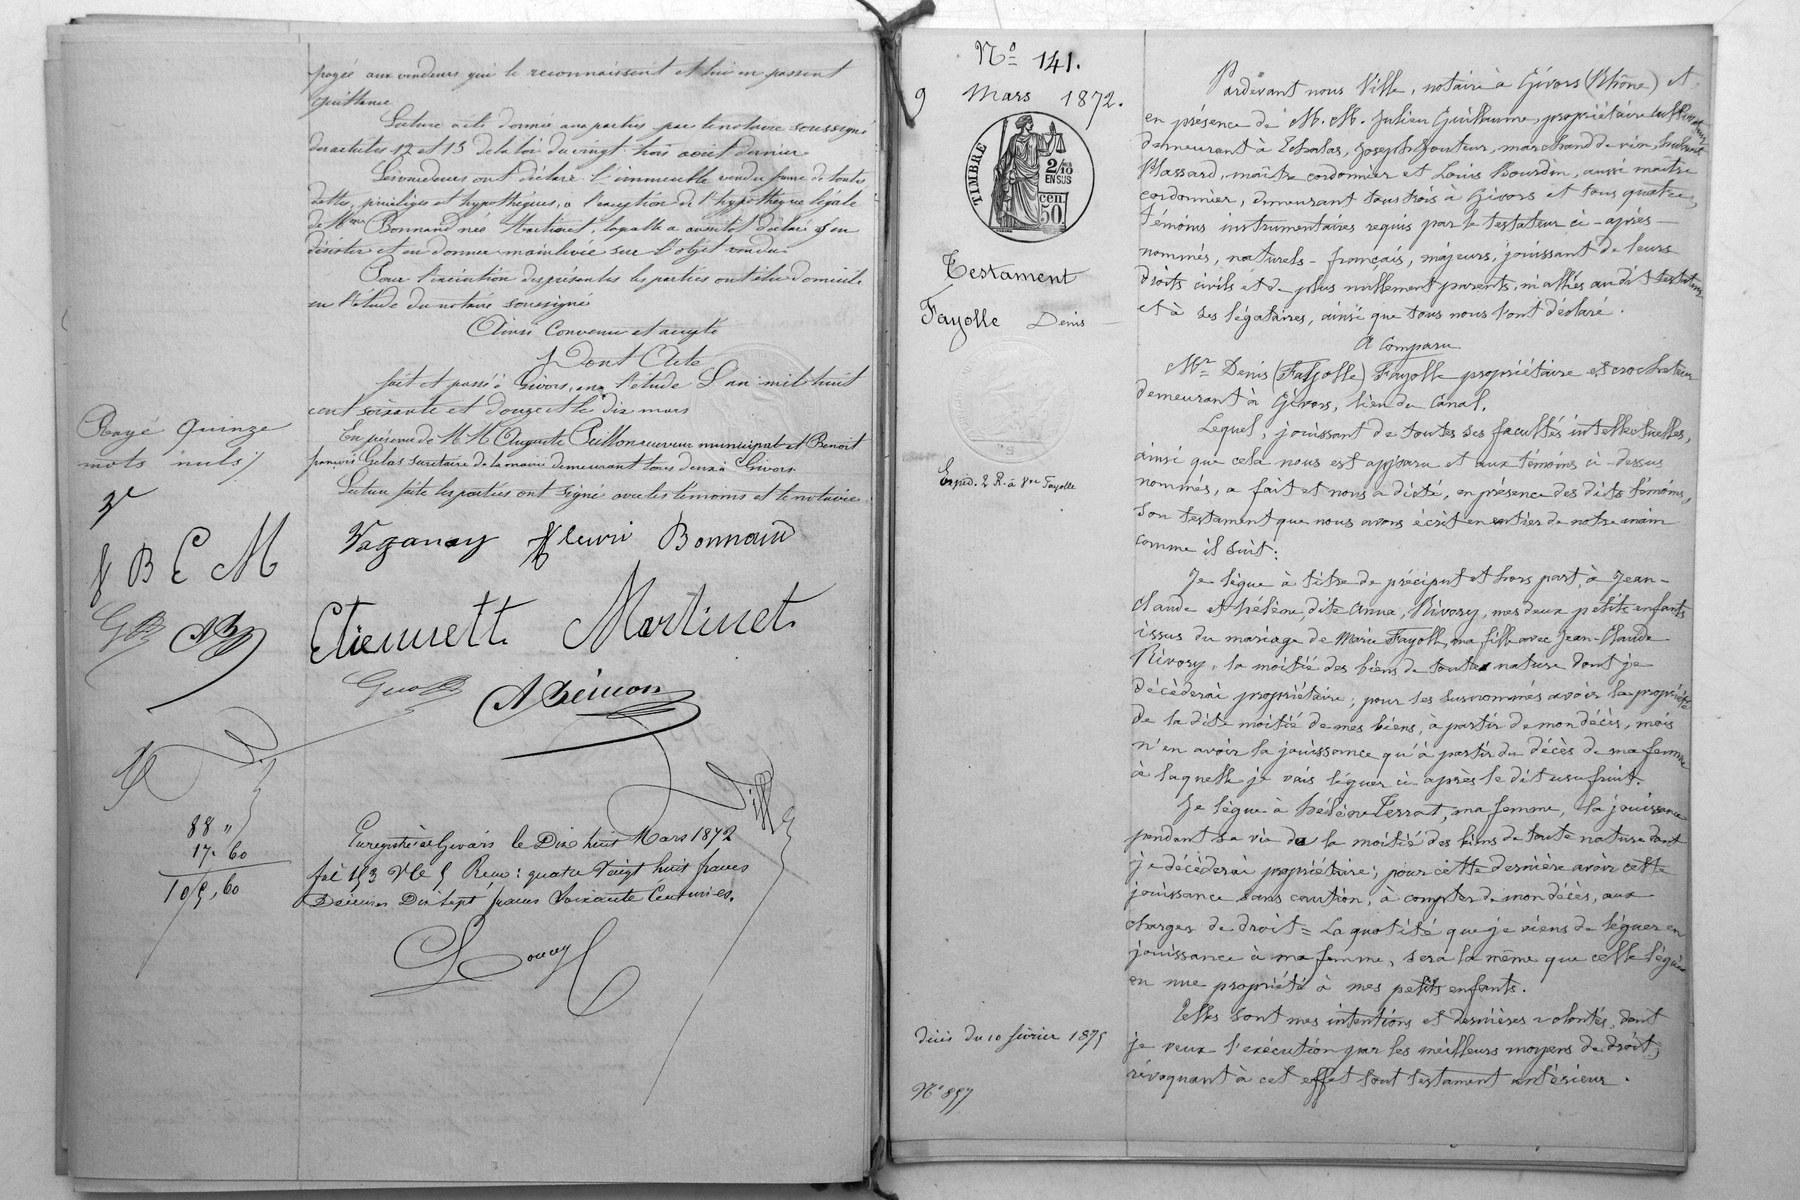 payée aux vendeurs qui le reconnaissent et lui en passent
quittance
Lecture a été donnée aux parties par le notaire soussigné
des articles 12 et 13 de la loi du vingt trois août dernier
Les vendeurs ont déclaré l'immeuble vendu franc de toutes
dettes, privilèges et hypothèques, à l'exception de l'hypothèque légale
de Mme Bonnand née Martinet, laquelle a aussitôt déclaré s'en
désister et en donner mainlevée sur l'objet vendu
Pour l'exécution des présentes les parties ont élu domicile
en l'étude du notaire soussigné
Ainsi Convenu et accepté
Dont Acte
fait et passé à Givors, en l'étude L'an mil huit
cent soixante et douze et le dix mars
En présence de M M Auguste receveur municipal et Benoit
françois Gelas secrétaire de la mairie demeurant tous deux à Givors
Lecture faite les parties ont signé avec les témoins et le notaire
Rayé quinze
mots nuls
B E M
Vaganay fleuri Bonnand
Etiennette Martinet
Ville
88 "
17. 60
105, 60
Enregistré à Givors le Dix huit Mars 1872
fol 153 Vo C 5 Reçu : quatre Vingt huit francs
Décimes Dix Sept francs Soixante Centimes.
No 141.
9 Mars 1872.
TIMBRE
2/10
EN SUS
50 cen.
Testament
Fayolle Denis
Exped. 2 R. à Vve Fayolle
décès du 10 février 1875
No 857
Pardevant nous Ville, notaire à Givors (Rhône) et
en présence de M. M. Julien Guillaume, propriétaire cultivateur
demeurant à Echalas, Joseph marchand de vin,
Massard, maître cordonnier et Louis Bourdin, aussi maître
cordonnier, demeurant tous trois à Givors et tous quatre,
témoins instrumentaires requis par le testateur ci-après-
nommés, naturels-français, majeurs, jouissant de leurs
droits civils et de plus nullement parents, ni alliés au dit testateur
et à ses légataires, ainsi que tous nous l'ont déclaré.
A Comparu
Mr Denis (Fayolle) Fayolle propriétaire et crocheteur
demeurant à Givors, lieu du Canal.
Lequel, jouissant de toutes ses facultés intellectuelles,
ainsi que cela nous est apparu et aux témoins ci-dessus
nommés, a fait et nous a dicté, en présence des dits témoins,
son testament que nous avons écrit en entier de notre main
comme il suit :
Je lègue à titre de préciput et hors part, à Jean-
Claude et hélène, dite Anna, Rivory, mes deux petits enfants
issus du mariage de Marie Fayolle, ma fille avec Jean-Claude
Rivory, la moitié des biens de toute nature dont je
décèderai propriétaire ; pour les susnommés avoir la propriété
de la dite moitié de mes biens, à partir de mon décès, mais
n'en avoir la jouissance qu'à partir du décès de ma femme
à laquelle je vais léguer ci après le dit usufruit.
Je lègue à hélène Terrat, ma femme, la jouissance
pendant sa vie de la moitié des biens de toute nature dont
je décèderai propriétaire ; pour cette dernière avoir cette
jouissance sans caution, à compter de mon décès, aux
charges de droit = La quotité que je viens de léguer en
jouissance à ma femme, sera la même que celle léguée
en nue propriété à mes petits enfants.
Telles sont mes intentions et dernières volontés, dont
je veux l'exécution par les meilleurs moyens de droit,
révoquant à cet effet tout testament antérieur.